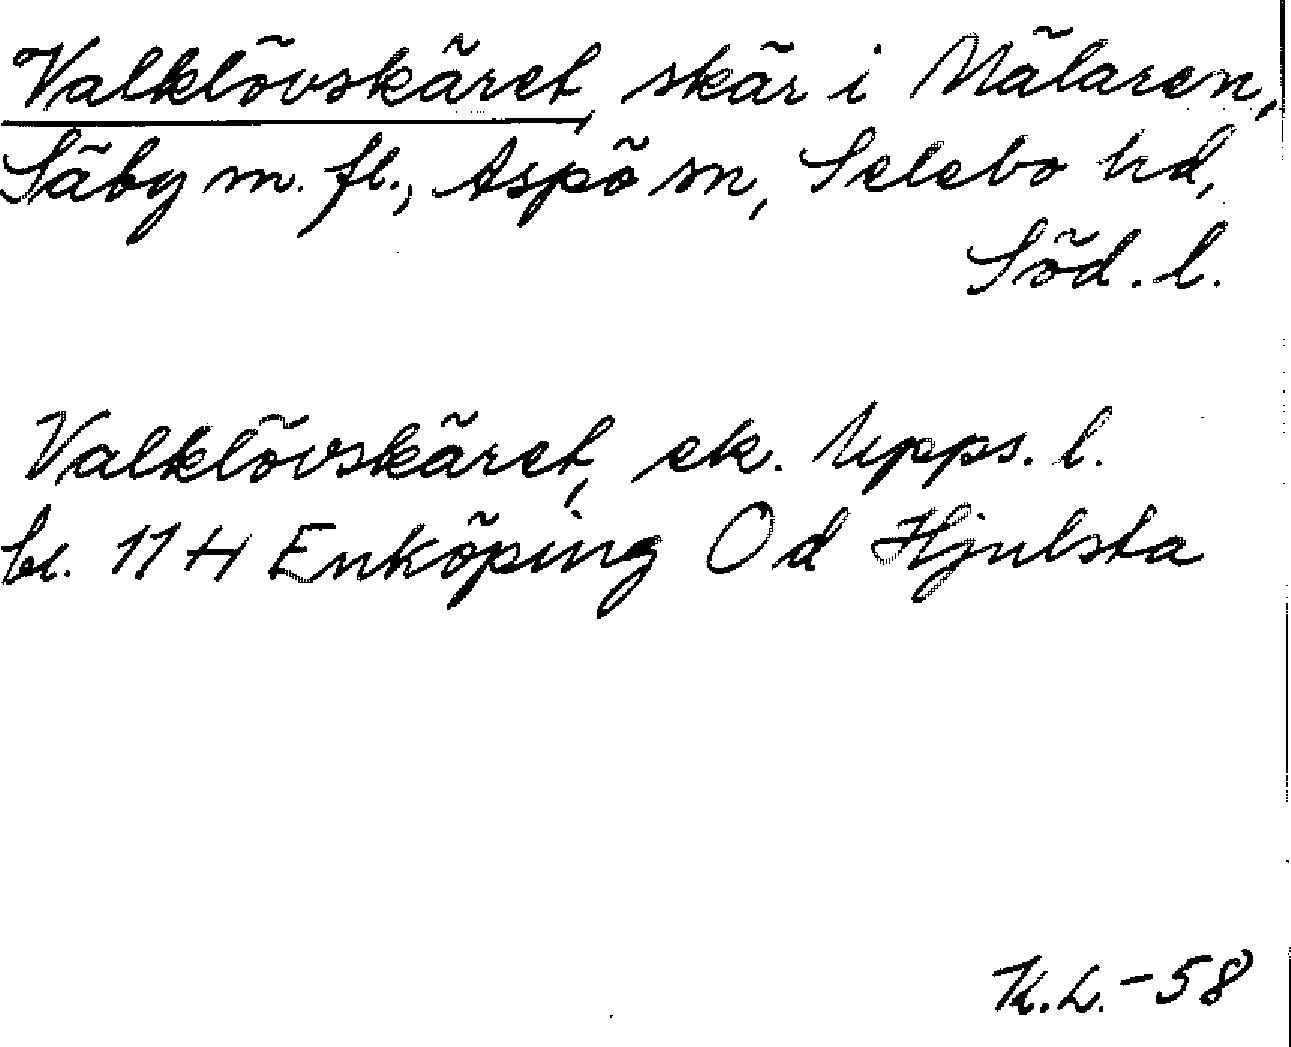 Valklövskäret, skär i Mälaren,
Säby m. fl., Aspö sn, Selebo hd,
Söd. l.
Valklövskäret, ek. Upps. l.
bl. 114 Enköping Od Hjulsta
K.L.-58